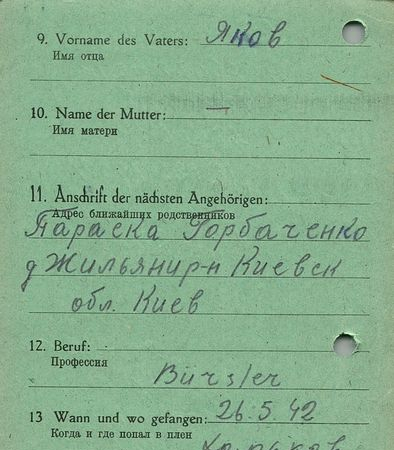 9. Vorname des Vaters: Яков
Имя отца
10. Name der Mutter: —
Имя матери
11. Anschrift der nächsten Angehörigen:
Адрес ближайших родственников
Параска Горбаченко
д Жильянир-н Киевск
обл. Киев
12. Beruf:
Профессия
Bürsler
13 Wann und wo gefangen: 26.5.42
Когда и где попал в плен
Харьков